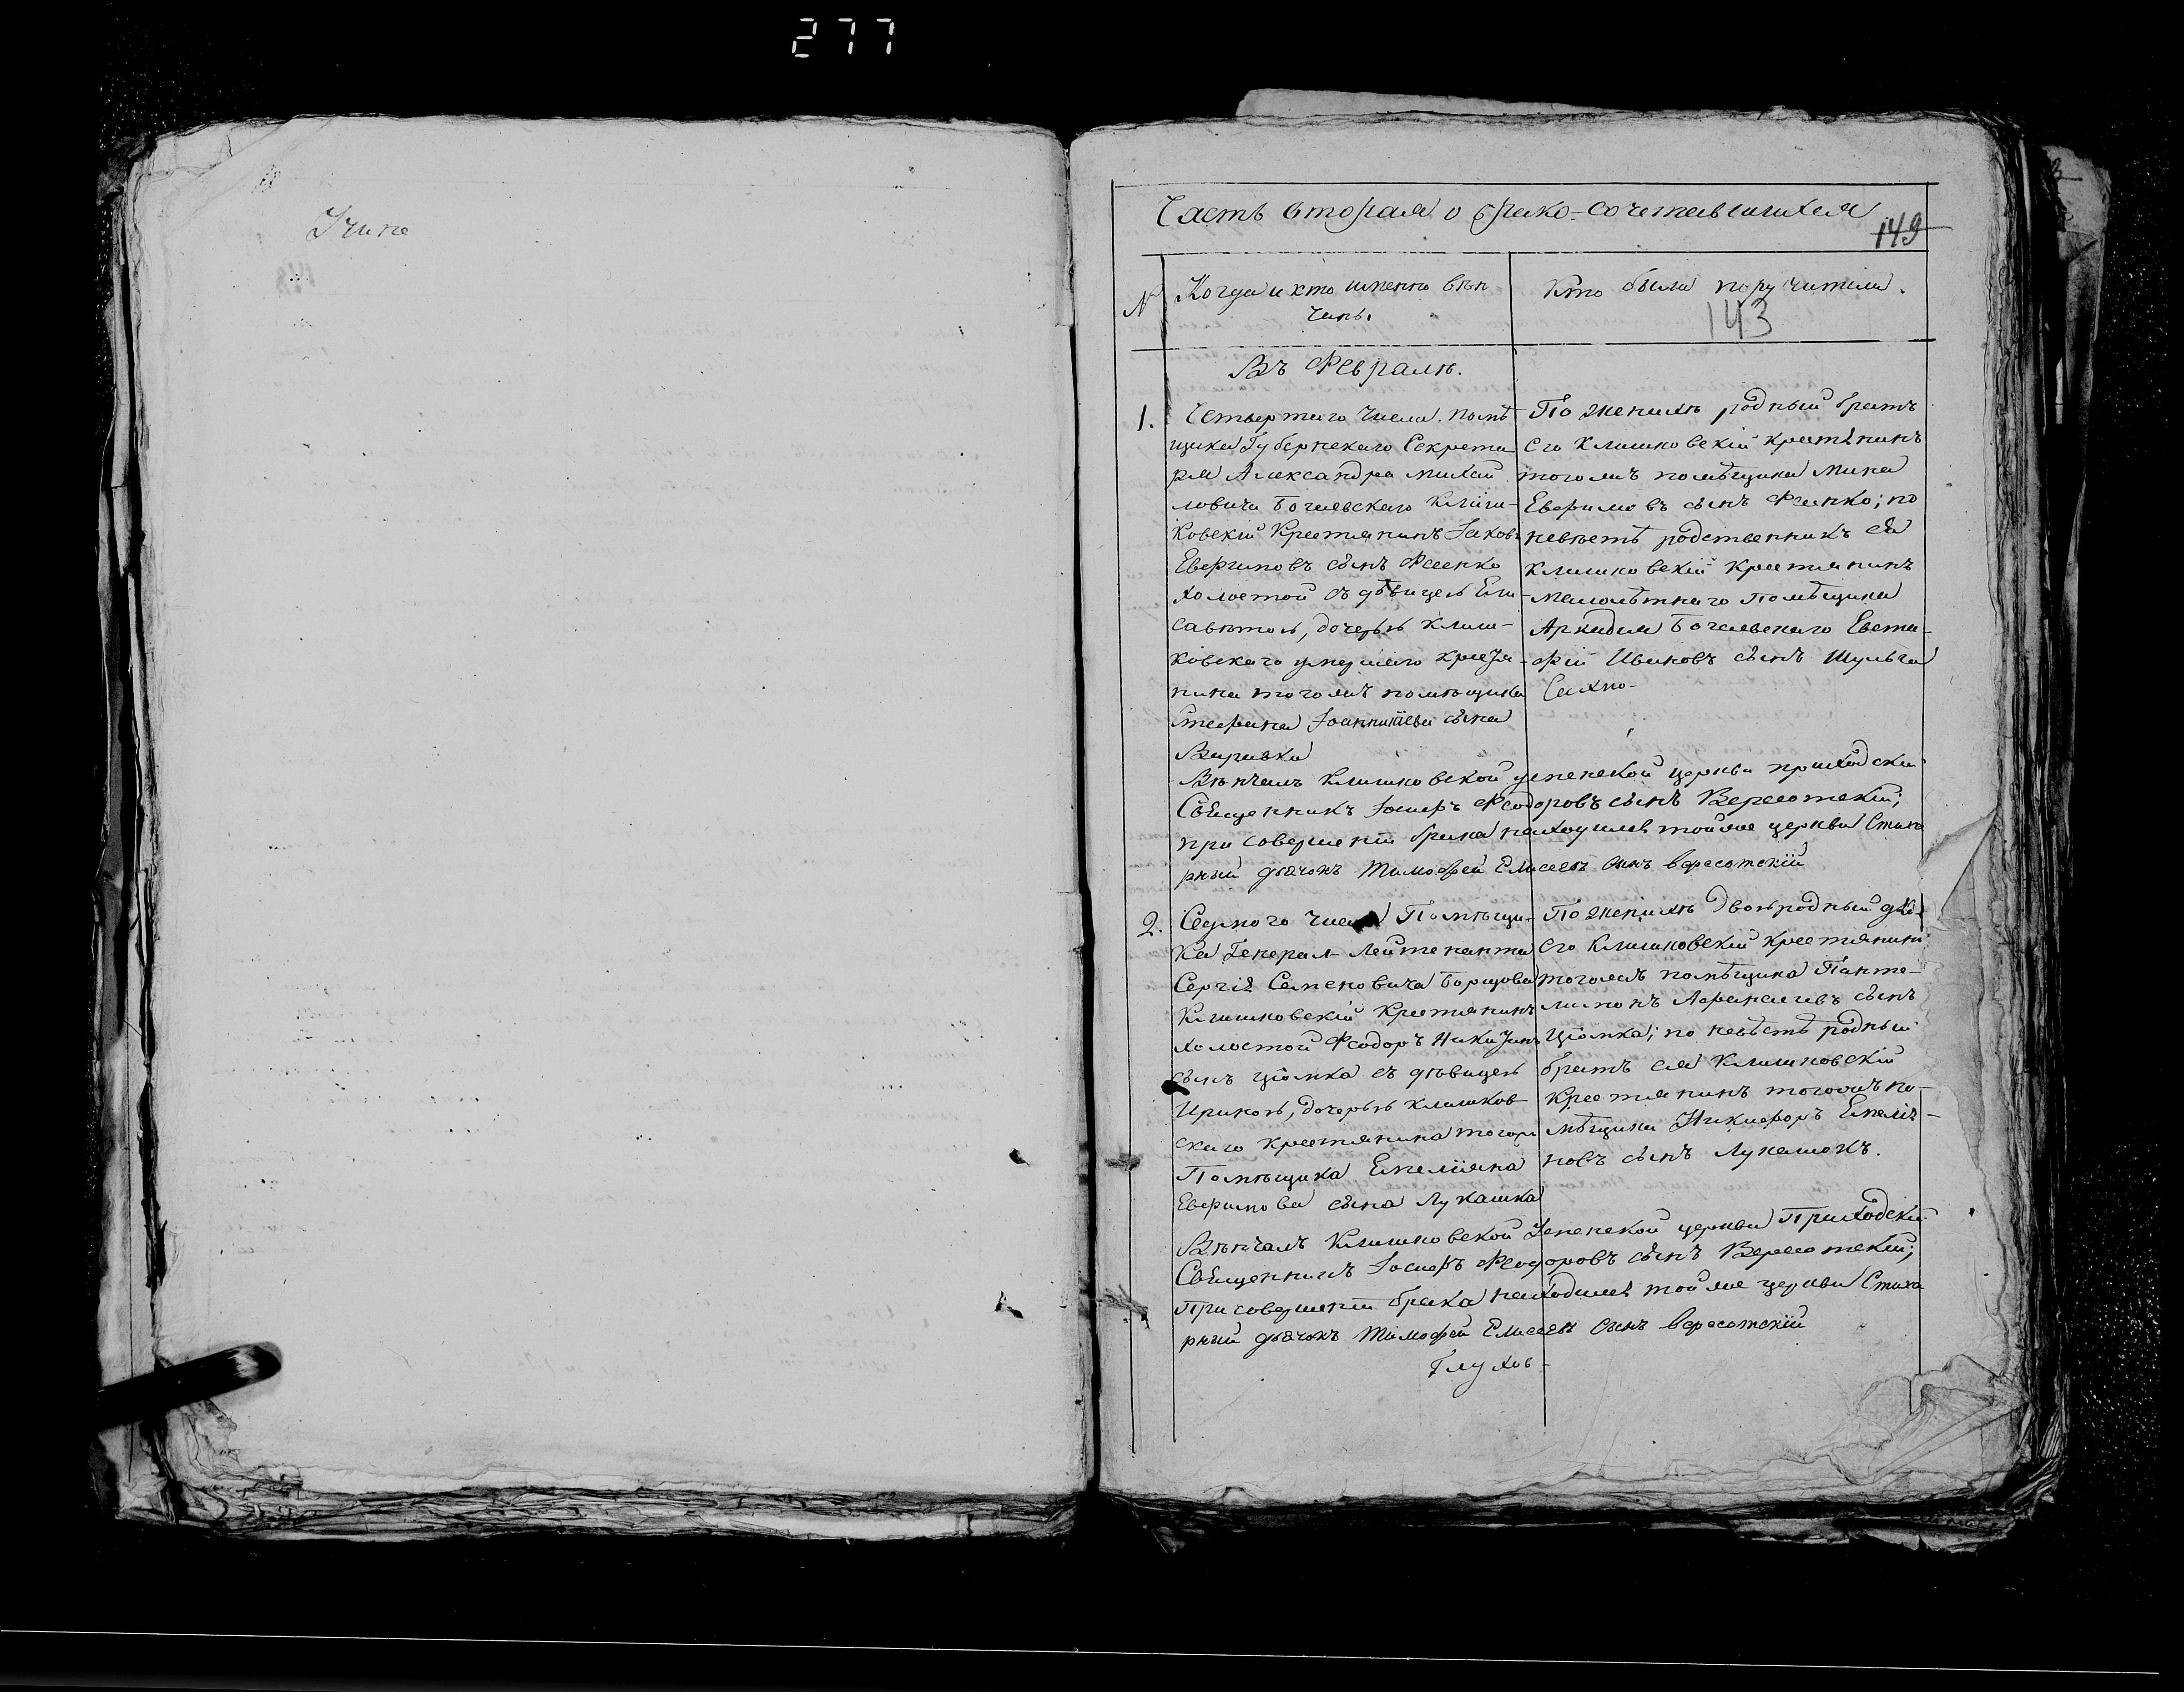 277
Часть вторая о брако-сочетавшихся
149
№
Когда и кто именно вѣн
чанъ.
Кто были поручители.
143
Въ Февралѣ.
1.
Четвертаго Числа. помѣ
щика Губернскаго Секрета
ря Александра Михай
ловича Богаевскаго Клиш-
ковскій Крестянинъ Іаковъ
сынъ Феенко
холостой съ дѣвицею Ели
саветою, дочерью Клиш-
ковскаго умершаго крестя
нина тогожъ помѣщика
Стефана сына
По женихѣ родный братъ
его Клишковскій крестянинъ
тогожъ помѣщика Мина
сынъ Феенко; по
невѣстѣ родственникъ ея
Клишковскій крестянинъ
малолѣтнаго помѣщика
Аркадия Богаевскаго Евста
фій Ивановъ сынъ Шульга
Вѣнчалъ Клишковской успенской церкви приходскій
Священникъ Іосифъ Феодоровъ сынъ Вересотскій;
при совершеніи брака находился тойже церкви Стиха
рный дьячокъ Тимофей Елисеевъ сынъ вересотскій
2.
Седмого числа Помѣщи-
ка Генерал-Лейтенанта
Сергія Семеновича Борщова
Клишковскій Крестянинъ
холостой Феодоръ Никитинъ
сынъ Ціомка съ дѣвицею
Ириною, дочерью клишков-
скаго крестянина тогожъ
Помѣщика Емеліяна
Евфимова сына Лукашка
По женихѣ Двоюродный дядя
его Клишковскій крестянинъ
тогожъ помѣщика Панте-
лимонъ Афанасиевъ сынъ
Ціомка; по невѣстѣ родный
братъ ея Клишковскій
Крестянинъ тогожъ по-
мѣщика Никифоръ Емелія-
новъ сынъ Лукашокъ.
Вѣнчалъ Клишковской Успенской церкви Приходскій
Священникъ Іосифъ Феодоровъ сынъ Вересотскій;
При совершеніи брака находился тойже церкви Стиха
рный дьячокъ Тимофей Елисеевъ сынъ вересотскій
Глухов-